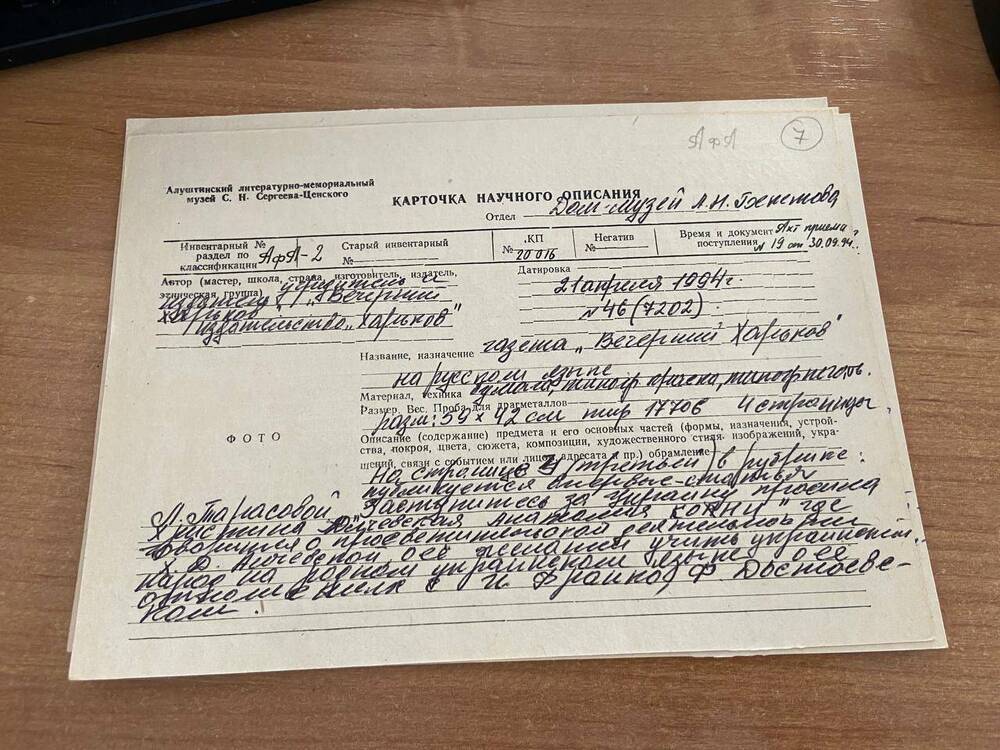 АфА 7
Алуштинский литературно-мемориальный
музей С. Н. Сергеева-Ценского
КАРТОЧКА НАУЧНОГО ОПИСАНИЯ
Отдел Дом-музей А.Н. Бекетова
Инвентарный №
раздел по
классификации АфА-2
Старый инвентарный
№
КП
№ 20016
Негатив
№
Время и документ Акт приема
поступления № 19 от 30.09.94г.
Автор (мастер, школа, страна, изготовитель, издатель,
этническая группа) учредитель и
издатель „Вечерний
Харьков"
издательство „Харьков"
Датировка
21 апреля 1994г.
№ 46 (7202)
Название, назначение газета „Вечерний Харьков"
на русском языке
Материал, техника бумага, типогр краска, типогр печать.
Размер. Вес. Проба для драгметаллов
разм: 59 х 42 см тир 17706 4 страницы
ФОТО
Описание (содержание) предмета и его основных частей (формы, назначения, устрой-
ства, покроя, цвета, сюжета, композиции, художественного стиля изображений, укра-
шений, связи с событием или лицом, адресата и пр.) обрамление
На странице 3 (третьей) в рубрике:
публикуется впервые-статья
А. Тарасовой „Заступитесь за Украину просила
Христина Алчевская" где
говорится о просветительской деятельности
Х. Д. Алчевской, о её желании учить украинский
народ на родном украинском языке, о ее
отношениях с И Франко, Ф Достоевс-
ким.